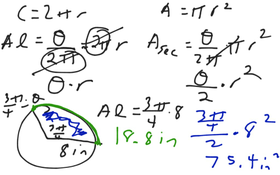 C = 2πr
A = πr²
AL = θ/2π = 2πr
A sec = θ/2π πr²
θ · r
θ/2 · r²
3π/4 = θ
3π/4
8 in
AL = 3π/4 · 8
18.8 in
3π/4/2 · 8²
75.4 in²